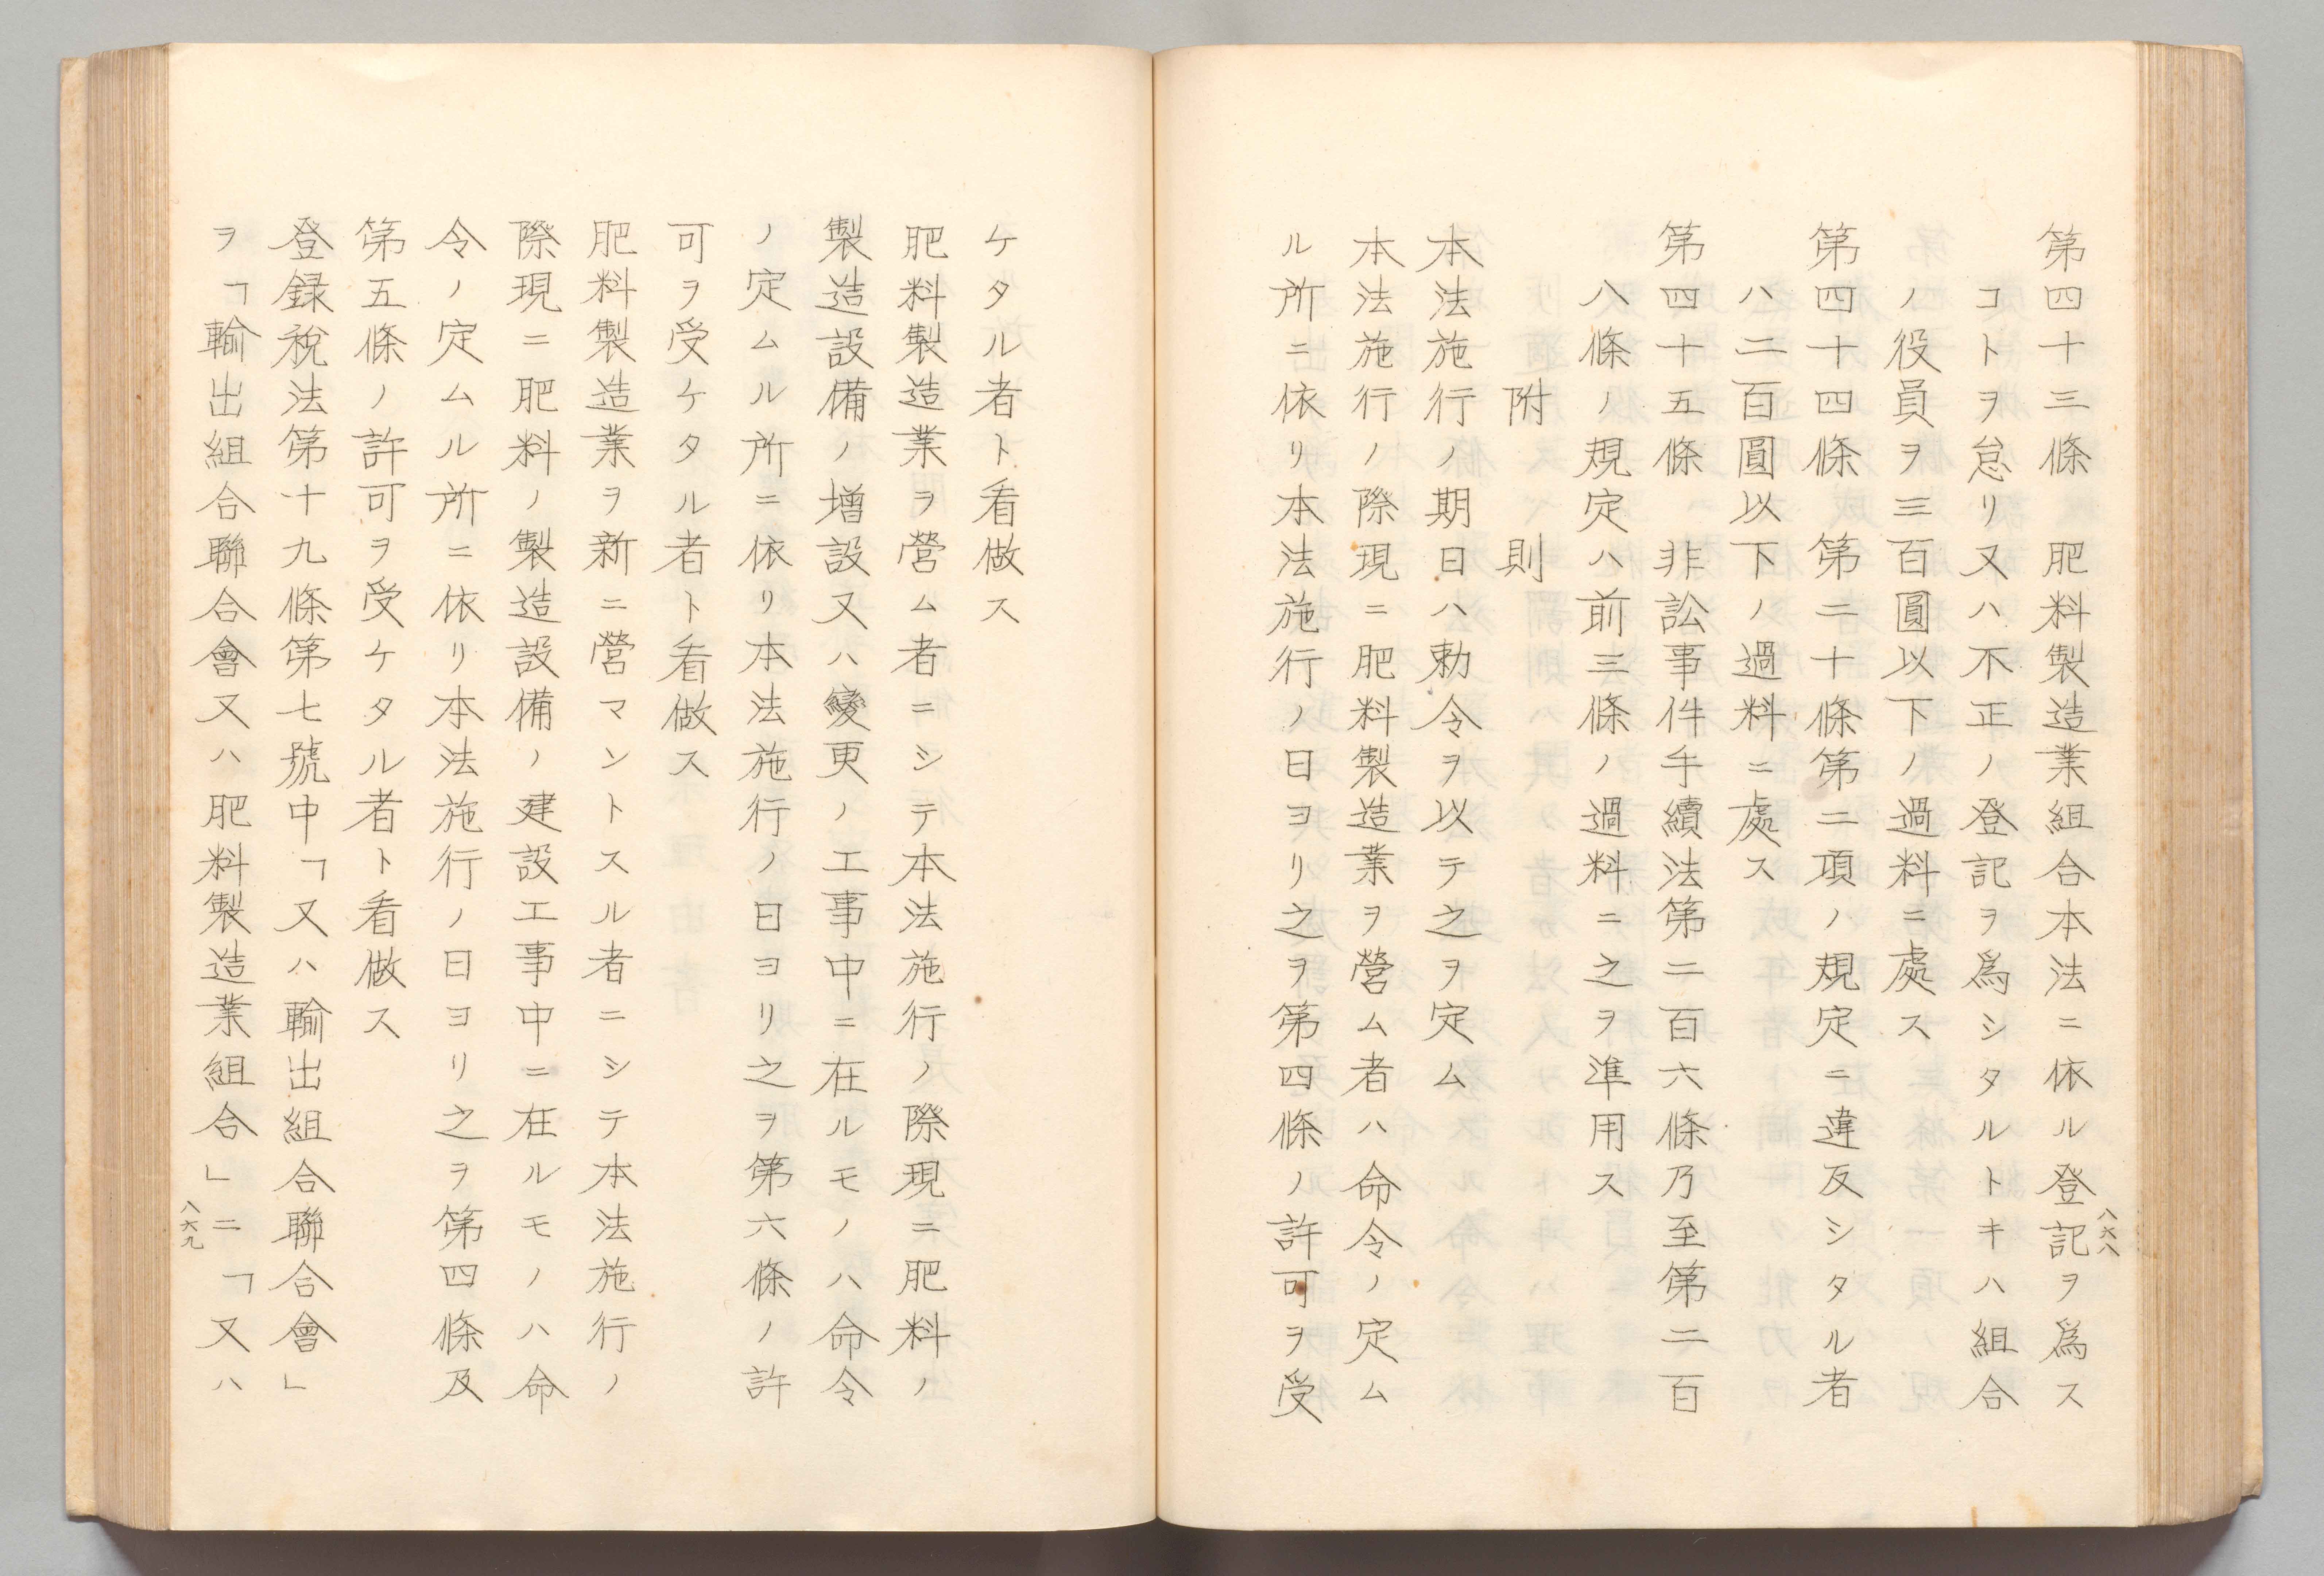 第四十三條　肥料製造業組合本法ニ依ル登記ヲ爲ス
コトヲ怠リ又ハ不正ノ登記ヲ爲シタルトキハ組合
ノ役員ヲ三百圓以下ノ過料ニ處ス
第四十四條　第二十條第二項ノ規定ニ違反シタル者
ハ二百圓以下ノ過料ニ處ス
第四十五條　非訟事件手續法第二百六條乃至第二百
八條ノ規定ハ前三條ノ過料ニ之ヲ準用ス
附　則
本法施行ノ期日ハ勅令ヲ以テ之ヲ定ム
本法施行ノ際現ニ肥料製造業ヲ營ム者ハ命令ノ定ム
ル所ニ依リ本法施行ノ日ヨリ之ヲ第四條ノ許可ヲ受
八六八
ケタル者ト看做ス
肥料製造業ヲ營ム者ニシテ本法施行ノ際現ニ肥料ノ
製造設備ノ增設又ハ變更ノ工事中ニ在ルモノハ命令
ノ定ムル所ニ依リ本法施行ノ日ヨリ之ヲ第六條ノ許
可ヲ受ケタル者ト看做ス
肥料製造業ヲ新ニ營マントスル者ニシテ本法施行ノ
際現ニ肥料ノ製造設備ノ建設工事中ニ在ルモノハ命
令ノ定ムル所ニ依リ本法施行ノ日ヨリ之ヲ第四條及
第五條ノ許可ヲ受ケタル者ト看做ス
登録稅法第十九條第七號中「又ハ輸出組合聯合會」
ヲ「輸出組合聯合會又ハ肥料製造業組合」ニ「又ハ
八六九